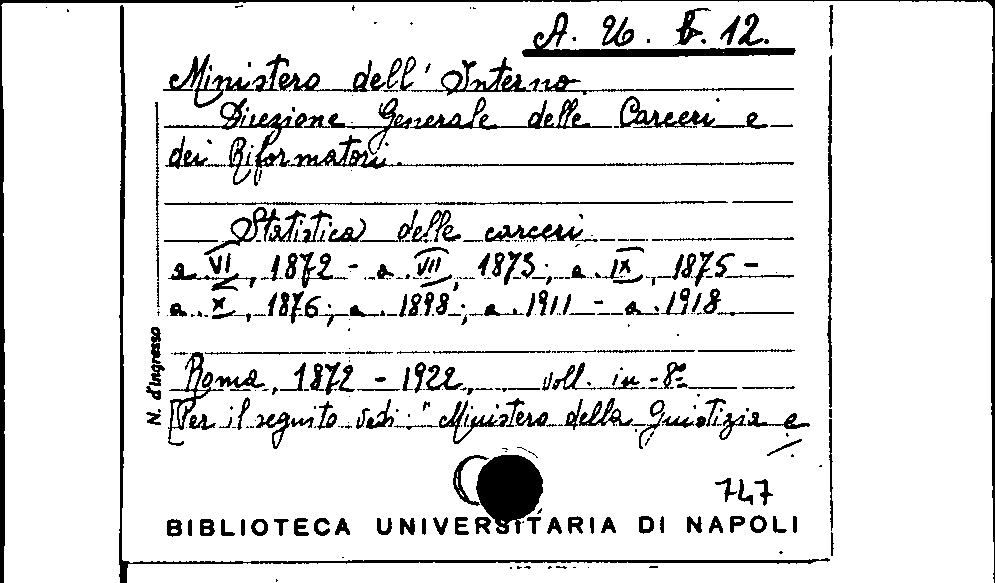 A. U. b. 12.
Ministero dell' Interno.
Direzione Generale delle Carceri e
dei Riformatori.
Statistica delle carceri
a. VI, 1872 - a. VII, 1873; a. IX, 1875 -
a. X, 1876; a. 1898; a. 1911 - a. 1918.
Roma, 1872 - 1922, voll. in-8º
[Per il seguito vedi: "Ministero della Giustizia e
N. d'Ingresso
747
BIBLIOTECA UNIVERSITARIA DI NAPOLI